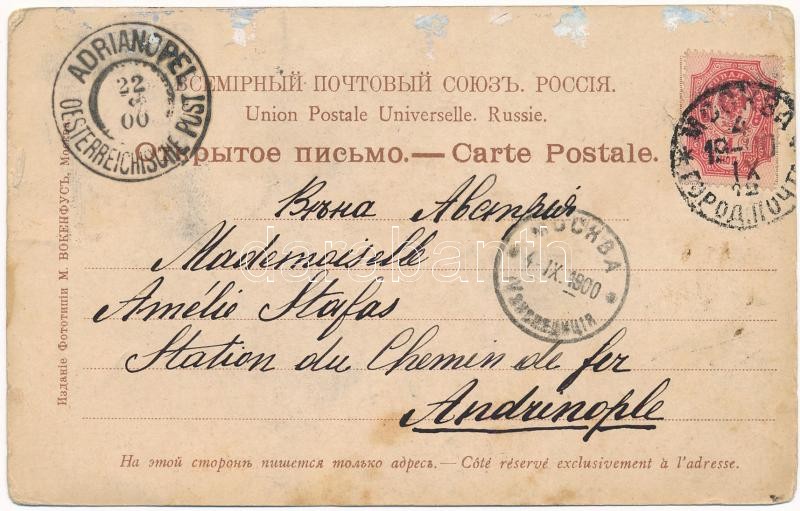 ADRIANOPEL
22
8
00
OESTERREICHISCHE POST
ВСЕМІРНЫЙ ПОЧТОВЫЙ СОЮЗЪ. РОССІЯ.
Union Postale Universelle. Russie.
Открытое письмо. — Carte Postale.
МОСКВА
4
IX
12
ГОРОД. ПОЧТ
Вѣна Австрія
МОСКВА
4. IX. 1900
IV ЭКСПЕДИЦІЯ
Mademoiselle
Amélie Stafas
Station du Chemin de fer
Andrinople
На этой сторонѣ пишется только адресъ. — Côté réservé exclusivement à l'adresse.
Изданіе Фототипіи М. ВОКЕНФУСЪ,
darabanth